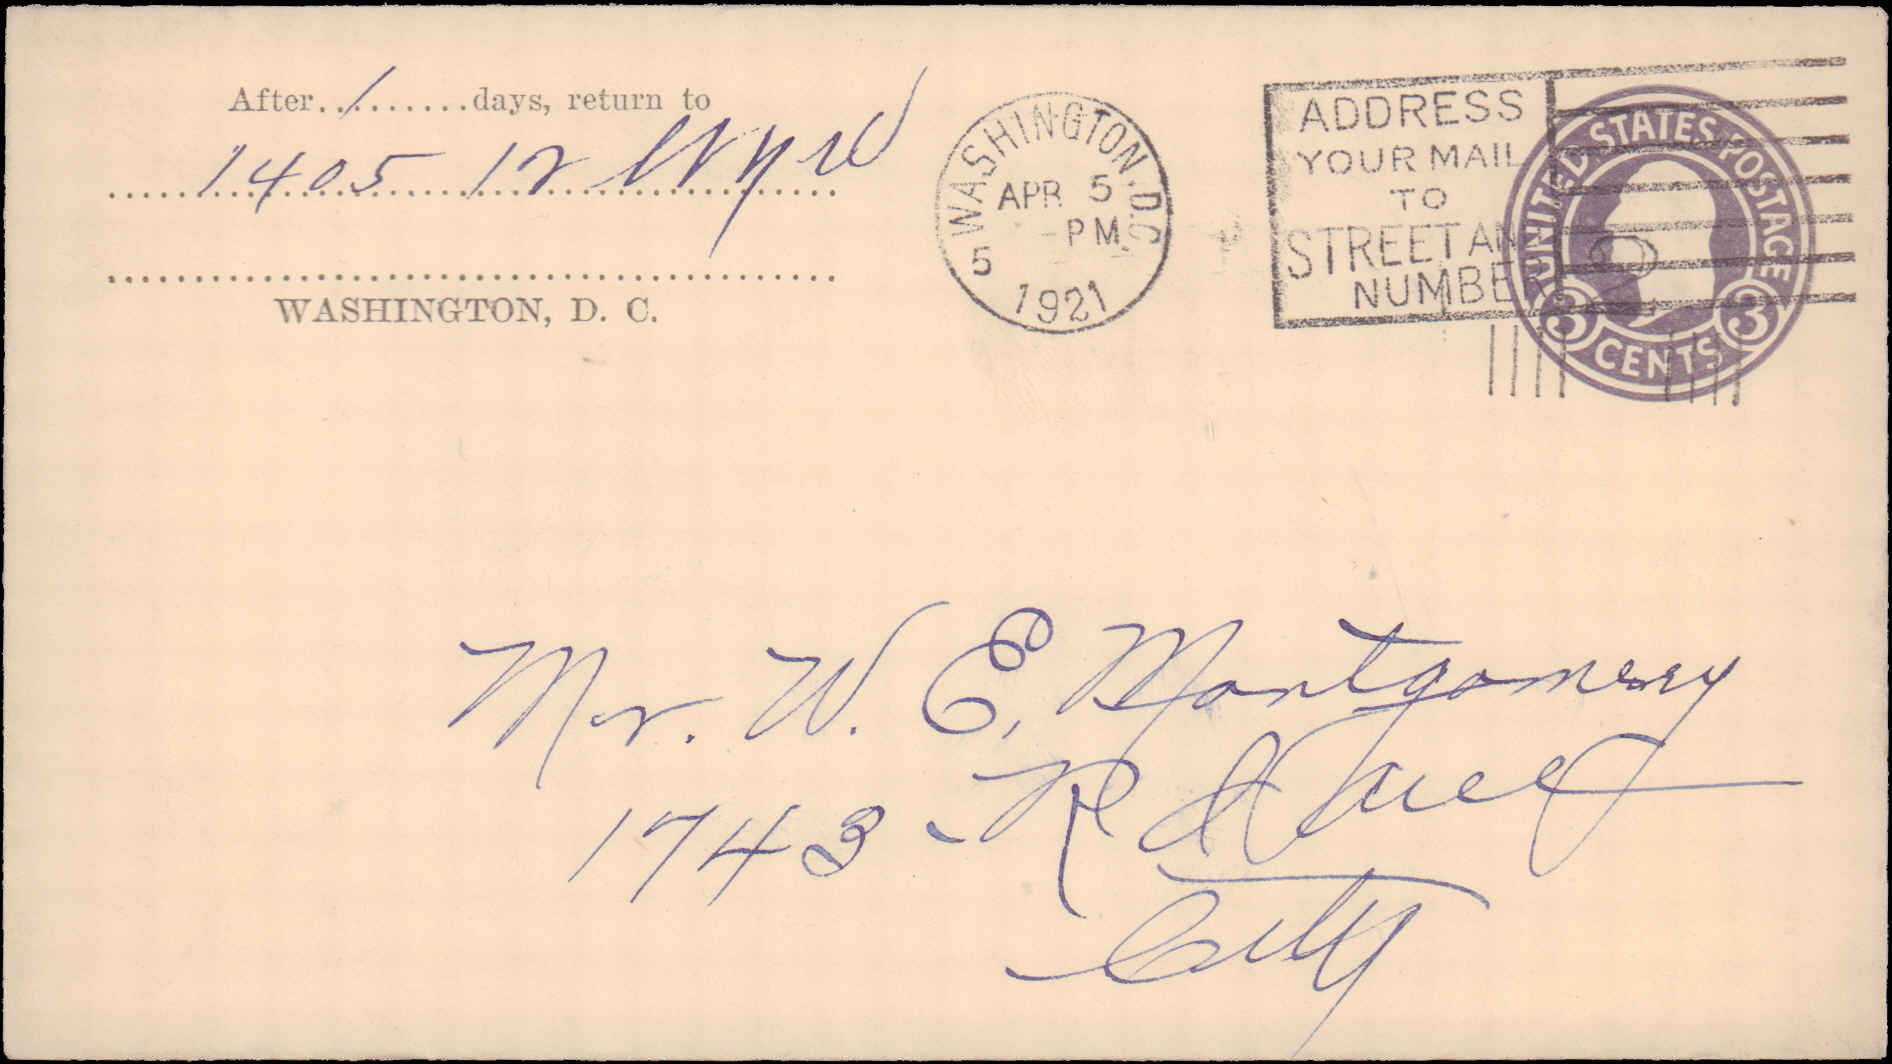 After 1 days, return to
1405 12 St NW
WASHINGTON, D. C.
WASHINGTON, D.C.
APR 5
PM
5
1921
ADDRESS
YOUR MAIL
TO
STREET AN
NUMBER
UNITED STATES POSTAGE
3 CENTS 3
Mr. W. E. Montgomery
1743 R Street
City